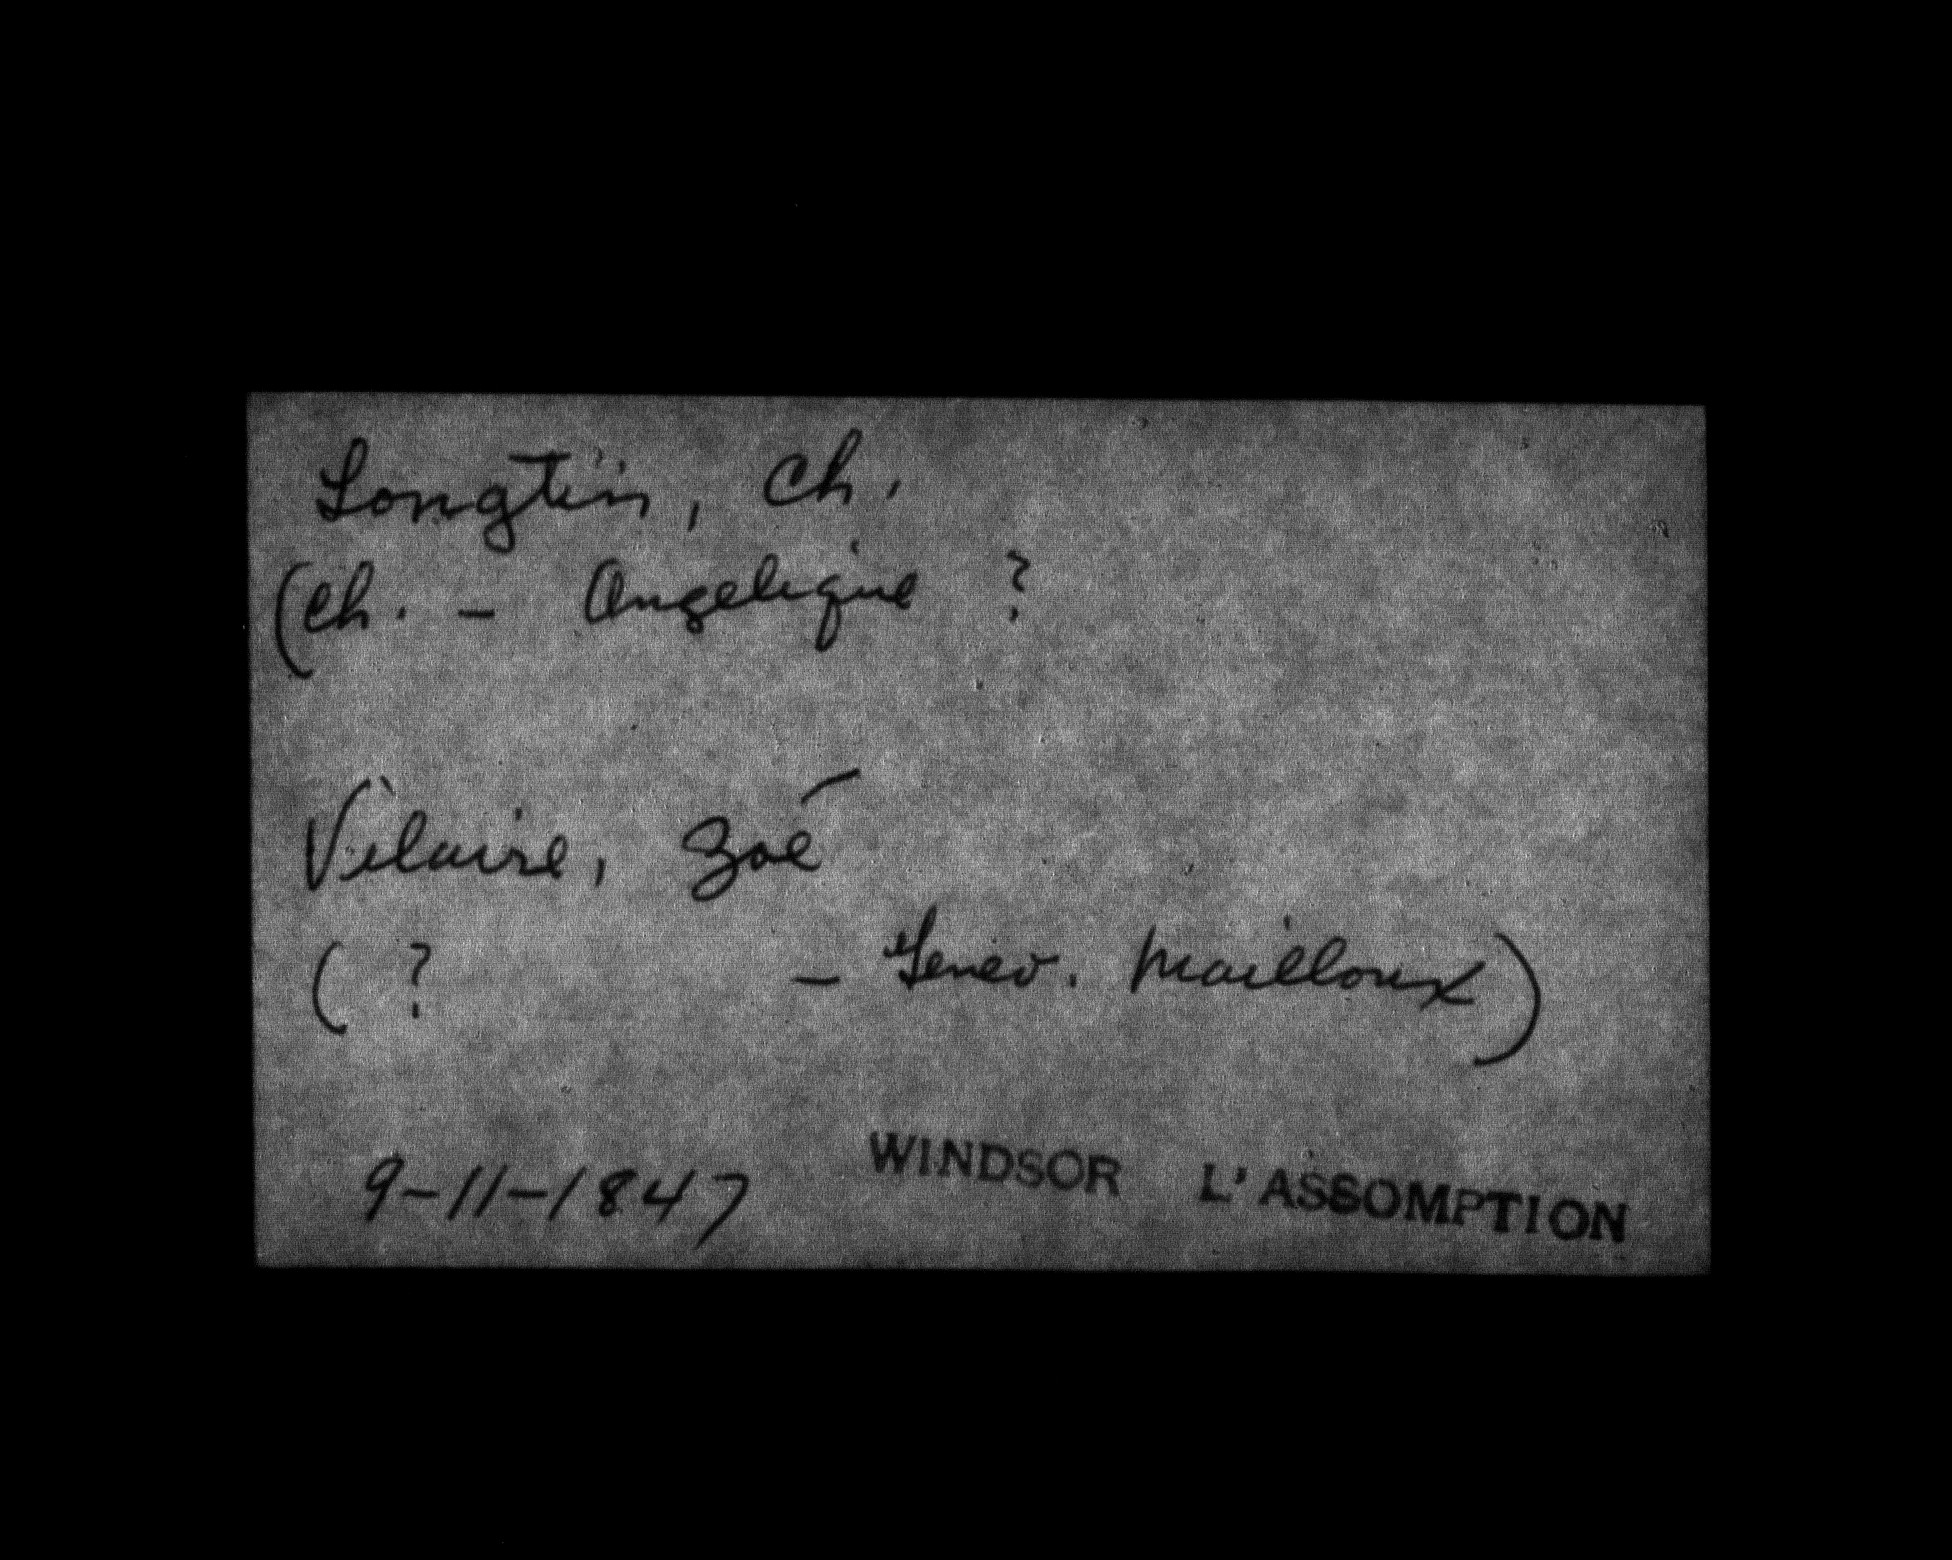 Longtin, Ch.
(Ch. - Angelique ?
Vilaire, Zoé
( ? - Genev. Mailloux)
9-11-1847 WINDSOR L'ASSOMPTION